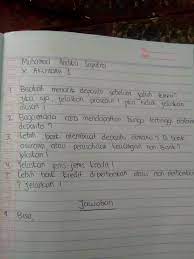 Muhamad Andika Saputra
X Akuntansi 1
1. Bisakah menarik deposito sebelum jatuh tempo?
jika iya, jelaskan prosesnya! jika tidak jelaskan
alasan!
2. Bagaimana cara mendapatkan bunga tertinggi dalam
deposito?
3. Lebih baik membuat deposito dimana? Di bank
atau perusahaan keuangan non Bank?
jelaskan!
4. Jelaskan jenis-jenis kredit!
5. Lebih baik kredit di perbankan atau non perbankan
? Jelaskan!
Jawaban
1. Bisa,